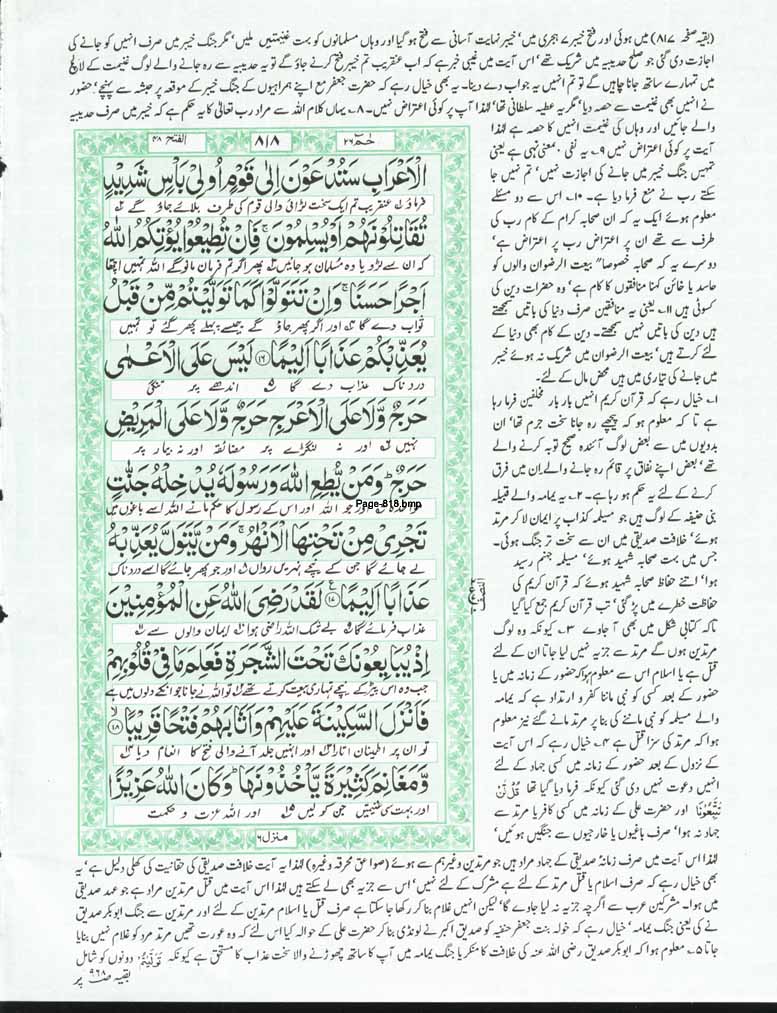 (بقیہ صفحہ ۸۱۷) میں ہوئی اور فتح خیبر ۷ ہجری میں' خیبر نہایت آسانی سے فتح ہو گیا اور وہاں مسلمانوں کو بہت غنیمتیں ملیں' مگر جنگ خیبر میں صرف انہیں کو جانے کی
اجازت دی گئی جو صلح حدیبیہ میں شریک تھے' اس آیت میں غیبی خبر ہے کہ اب عنقریب تم خیبر فتح کرنے جاؤ گے تو یہ حدیبیہ سے رہ جانے والے لوگ غنیمت کے لالچ
میں تمہارے ساتھ جانا چاہیں گے تو تم انہیں یہ جواب دے دینا۔ یہ بھی خیال رہے کہ حضرت جعفر مع اپنے ہمراہیوں کے جنگ خیبر کے موقعہ پر حبشہ سے پہنچے' حضور
نے انہیں بھی غنیمت سے حصہ دیا' مگر یہ عطیہ سلطانی تھا' لہٰذا آپ پر کوئی اعتراض نہیں۔ ۸۔ یہاں کلام اللہ سے مراد رب تعالیٰ کا یہ حکم ہے کہ خیبر میں صرف حدیبیہ
والے جائیں اور وہاں کی غنیمت انہیں کا حصہ ہے لہٰذا
آیت پر کوئی اعتراض نہیں ۹۔ یہ نفی' بمعنی نہی ہے یعنی
تمہیں جنگ خیبر میں جانے کی اجازت نہیں' تم نہیں جا
سکتے رب نے منع فرما دیا ہے۔ ۱۰۔ اس سے دو مسئلے
معلوم ہوئے ایک یہ کہ ان صحابہ کرام کے کام رب کی
طرف سے تھے ان پر اعتراض رب پر اعتراض ہے'
دوسرے یہ کہ صحابہ خصوصاً" بیعت الرضوان والوں کو
حاسد یا خائن کہنا منافقوں کا کام ہے' وہ حضرات دین کی
کسوٹی ہیں ۱۱۔ یعنی یہ منافقین صرف دنیا کی باتیں سمجھتے
ہیں دین کی باتیں نہیں سمجھتے۔ دین کے کام بھی دنیا کے
لئے کرتے ہیں' بیعت الرضوان میں شریک نہ ہوئے خیبر
میں جانے کی تیاری میں ہیں محض مال کے لئے۔
۱۔ خیال رہے کہ قرآن کریم انہیں بار بار مخلفین فرما رہا
ہے تا کہ معلوم ہو کہ پیچھے رہ جانا سخت جرم تھا' ان
بدویوں میں سے بعض لوگ آئندہ صحیح توبہ کرنے والے
تھے' بعض اپنے نفاق پر قائم رہ جانے والے ان میں فرق
کرنے کے لئے یہ حکم ہو رہا ہے۔ ۲۔ یہ یمامہ والے قبیلہ
بنی حنیفہ کے لوگ ہیں جو مسیلمہ کذاب پر ایمان لا کر مرتد
ہوئے' خلافت صدیقی میں ان سے سخت تر جنگ ہوئی۔
جس میں بہت صحابہ شہید ہوئے' مسیلمہ جہنم رسید
ہوا' اتنے حفاظ صحابہ شہید ہوئے کہ قرآن کریم کی
حفاظت خطرے میں پڑ گئی' تب قرآن کریم جمع کیا گیا
تاکہ کتابی شکل میں بھی آ جاوے ۳۔ کیونکہ وہ لوگ
مرتدین ہوں گے مرتد سے جزیہ نہیں لیا جاتا ان کے لئے
قتل ہے یا اسلام اس سے معلوم ہوا کہ حضور کے زمانہ میں یا
حضور کے بعد کسی کو نبی ماننا کفر و ارتداد ہے کہ یمامہ
والے مسیلمہ کو نبی ماننے کی بنا پر مرتد مانے گئے نیز معلوم
ہوا کہ مرتد کی سزا قتل ہے ۴۔ خیال رہے کہ اس آیت
کے نزول کے بعد حضور کے زمانہ میں کسی جہاد کے لئے
انہیں دعوت نہیں دی گئی کیونکہ فرما دیا گیا تھا قُلْ لَّنْ
تَتَّبِعُوْنَا اور حضرت علی کے زمانہ میں کسی کافر یا مرتد سے
جہاد نہ ہوا' صرف باغیوں یا خارجیوں سے جنگیں ہوئیں'
الفتح ۴۸
۸۱۸
حٰمٓ ۲۶
الْاَعْرَابِ سَتُدْعَوْنَ اِلٰى قَوْمٍ اُولِیْ بَاْسٍ شَدِیْدٍ
فرماؤ ل عنقریب تم ایک سخت لڑائی والی قوم کی طرف بلائے جاؤ گے
تُقَاتِلُوْنَهُمْ اَوْ یُسْلِمُوْنَ ۚ فَاِنْ تُطِیْعُوْا یُؤْتِكُمُ اللّٰهُ
کہ ان سے لڑو یا وہ مسلمان ہو جائیں پھر اگر تم فرمان مانو گے اللہ تمہیں اچھا
اَجْرًا حَسَنًا ۚ وَاِنْ تَتَوَلَّوْا كَمَا تَوَلَّیْتُمْ مِّنْ قَبْلُ
ثواب دے گا اور اگر پھر جاؤ گے جیسے پہلے پھر گئے تو تمہیں
یُعَذِّبْكُمْ عَذَابًا اَلِیْمًا ۝۱۶ لَیْسَ عَلَى الْاَعْمٰى
دردناک عذاب دے گا اندھے پر تنگی
حَرَجٌ وَّلَا عَلَى الْاَعْرَجِ حَرَجٌ وَّلَا عَلَى الْمَرِیْضِ
نہیں اور نہ لنگڑے پر مضائقہ اور نہ بیمار پر
حَرَجٌ ؕ وَمَنْ یُّطِعِ اللّٰهَ وَرَسُوْلَهٗ یُدْخِلْهُ جَنّٰتٍ
اور جو اللہ اور اس کے رسول کا حکم مانے اللہ اسے باغوں میں
Page-818.bmp
تَجْرِیْ مِنْ تَحْتِهَا الْاَنْهٰرُ ۚ وَمَنْ یَّتَوَلَّ یُعَذِّبْهُ
لے جائے گا جن کے نیچے نہریں رواں اور جو پھر جائے گا اسے دردناک
عَذَابًا اَلِیْمًا ۝۱۷ لَقَدْ رَضِیَ اللّٰهُ عَنِ الْمُؤْمِنِیْنَ
عذاب فرمائے گا بے شک اللہ راضی ہوا ایمان والوں سے
اِذْ یُبَایِعُوْنَكَ تَحْتَ الشَّجَرَةِ فَعَلِمَ مَا فِیْ قُلُوْبِهِمْ
جب وہ اس پیڑ کے نیچے تمہاری بیعت کرتے تھے تو اللہ نے جانا جو انکے دلوں میں ہے
فَاَنْزَلَ السَّكِیْنَةَ عَلَیْهِمْ وَاَثَابَهُمْ فَتْحًا قَرِیْبًا ۝۱۸
تو ان پر اطمینان اتارا اور انہیں جلد آنے والی فتح کا انعام دیا
وَّمَغَانِمَ كَثِیْرَةً یَّاْخُذُوْنَهَا ؕ وَكَانَ اللّٰهُ عَزِیْزًا
اور بہت سی غنیمتیں جن کو لیں اور اللہ عزت و حکمت
منزل ۶
لہٰذا اس آیت میں صرف زمانہ صدیقی کے جہاد مراد ہیں جو مرتدین وغیرہم سے ہوئے (صواعق محرقہ وغیرہ) لہٰذا یہ آیت خلافت صدیقی کی حقانیت کی کھلی دلیل ہے' یہ
بھی خیال رہے کہ صرف اسلام یا قتل مرتد کے لئے ہے مشرک کے لئے نہیں' اس سے جزیہ بھی لے سکتے ہیں لہٰذا اس آیت میں قتل مرتدین مراد ہے جو عہد صدیقی
میں ہوا۔ مشرکین عرب سے اگرچہ جزیہ نہ لیا جاوے گا' لیکن انہیں غلام بنا کر رکھا جا سکتا ہے صرف قتل یا اسلام مرتدین کے لئے اور مرتدین سے جنگ ابوبکر صدیق
نے کی یعنی جنگ یمامہ' خیال رہے کہ خولہ بنت جعفر حنفیہ کو صدیق اکبر نے لونڈی بنا کر حضرت علی کے حوالہ کیا اس لئے کہ وہ عورت تھیں مرتد مرد کو غلام نہیں بنایا
جاتا ۵۔ معلوم ہوا کہ ابوبکر صدیق رضی اللہ عنہ کی خلافت کا منکر یا جنگ یمامہ میں آپ کا ساتھ چھوڑنے والا سخت عذاب کا مستحق ہے کیونکہ تَوَلَّیْتُمْ دونوں کو شامل
بقیہ صہ ۹۶۸ پر